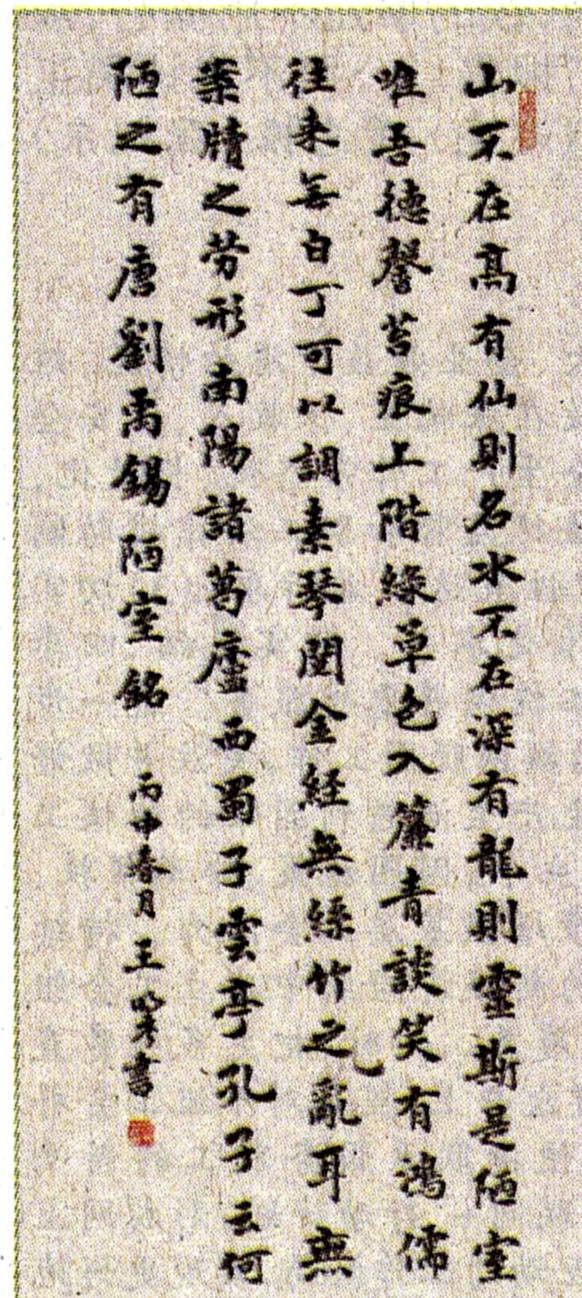 山不在高有仙則名水不在深有龍則靈斯是陋室
唯吾德馨苔痕上階緑草色入簾青談笑有鴻儒
往来無白丁可以調素琴閱金経無絲竹之亂耳無
案牘之劳形南陽諸葛廬西蜀子雲亭孔子云何
陋之有唐劉禹錫陋室銘
丙申春月王 書